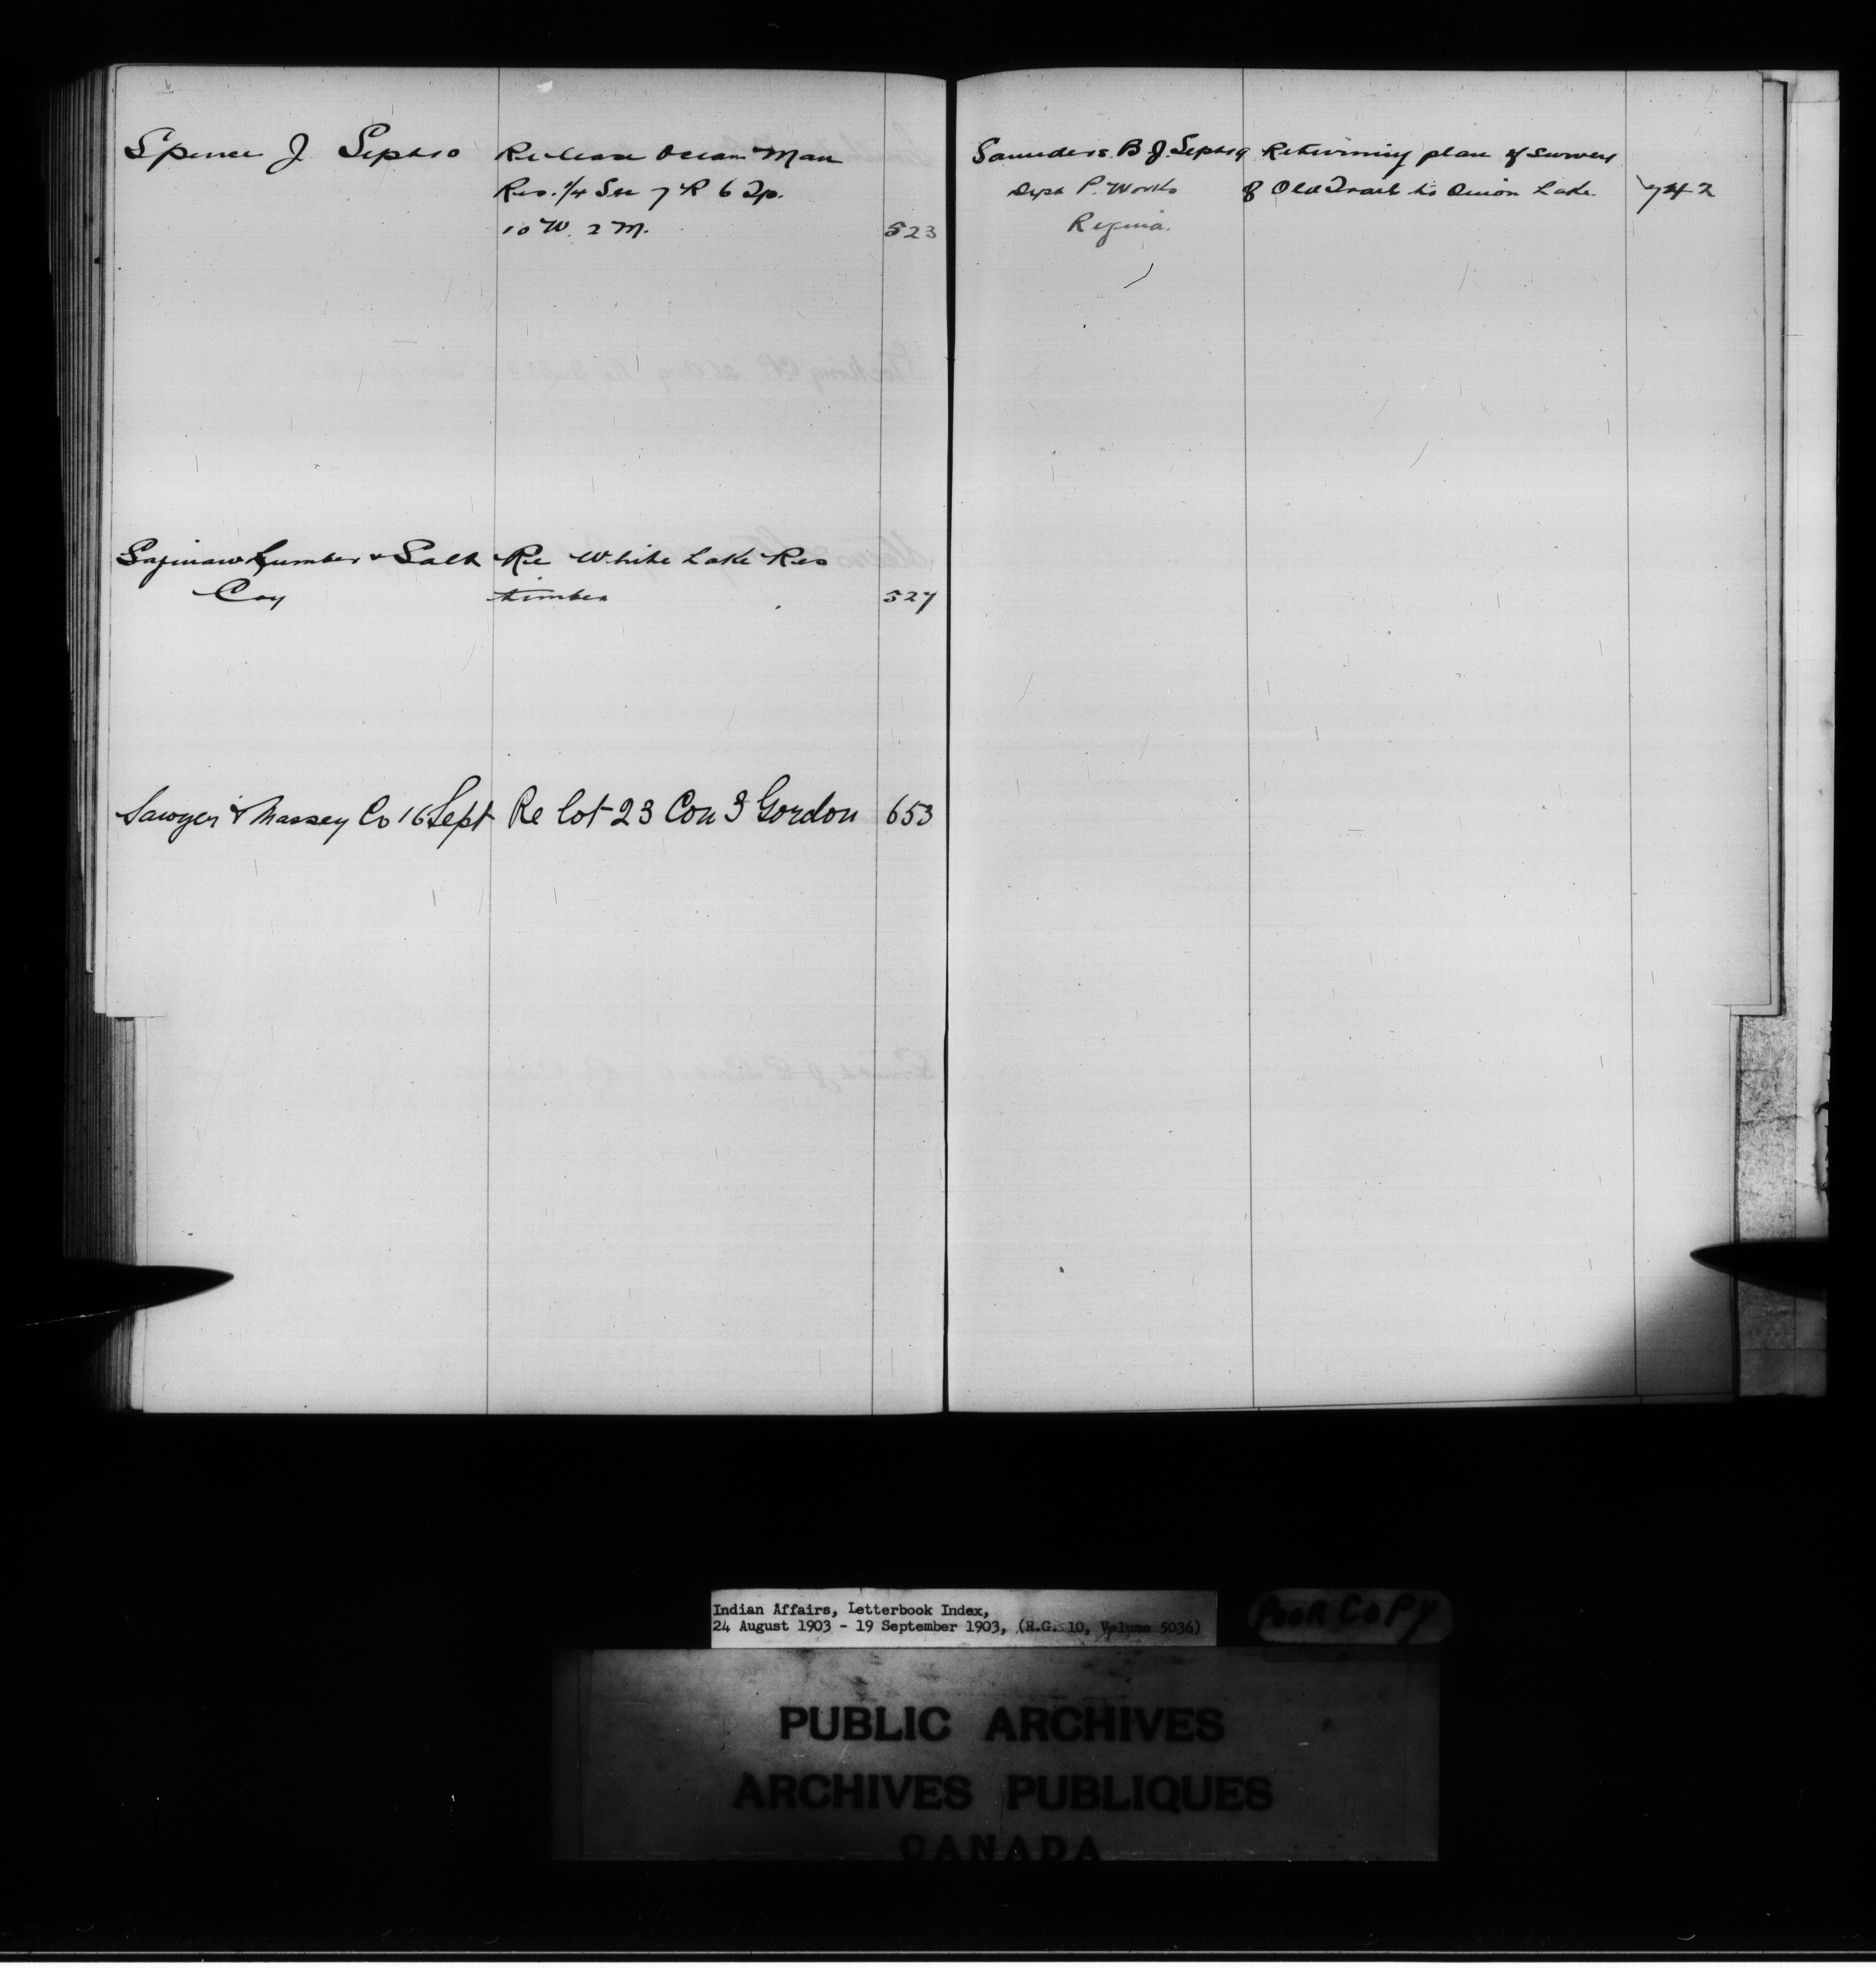 Spence J. Sept 10 Re lease Ocean Man
Res. 1/4 Sec 7 R 6 Tp.
10 W. 2 M. 523
Saginaw Lumber & Salt Re White Lake Res
Coy timber 527
Sawyer & Massey Co 16 Sept Re lot 23 Con 3 Gordon 653
Saunders B. J. Sept 19 Returning plan of survey
Dept P. Works of Old Trail to Onion Lake. 742
Regina.
Indian Affairs, Letterbook Index,
24 August 1903 - 19 September 1903, (R.G. 10, Volume 5036)
POOR COPY
PUBLIC ARCHIVES
ARCHIVES PUBLIQUES
CANADA